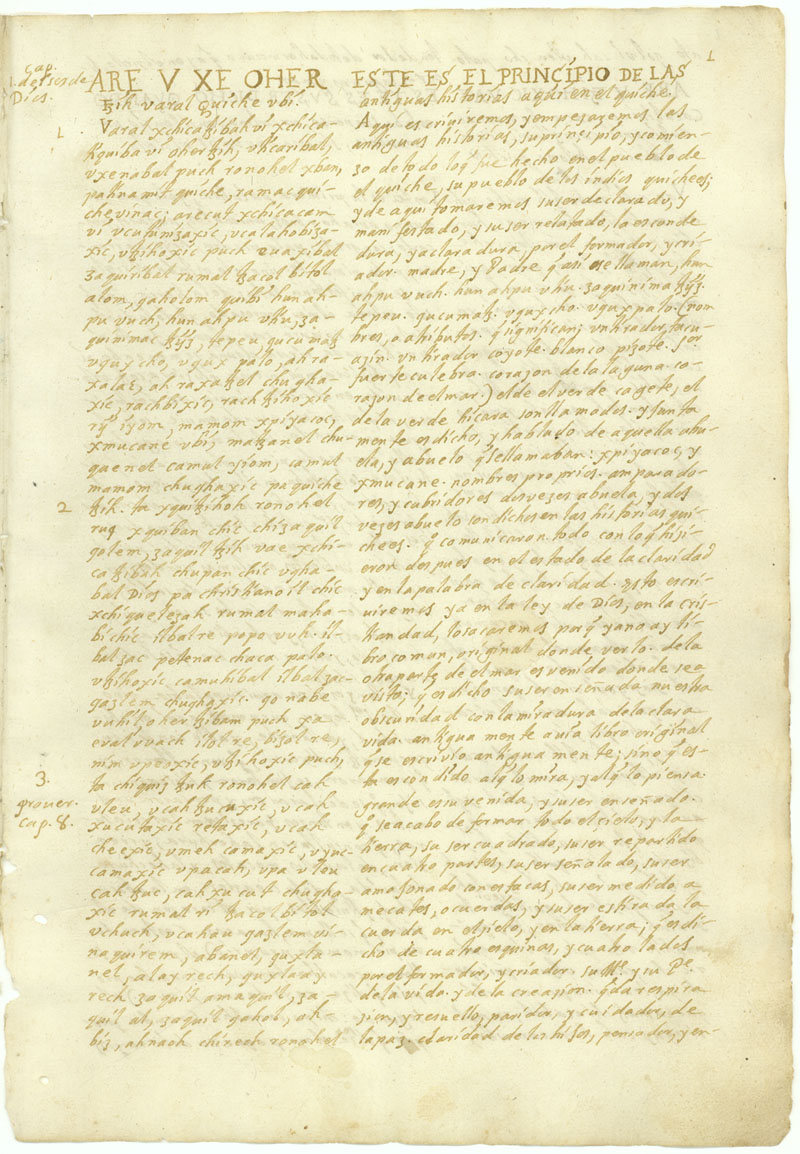 1
Cap.
Dios.
ARE V XE OHER
ꜩih varal Quiche vbi.
1
Varal xchicaꜩibah vi xchica-
tiquiba vi oher ꜩih, vticaribal,
vxenabal puch ronohel xban,
pa tinamit quiche, ramac qui-
che vinac; arecut xchicacam
vi vcutunizaxic, vcalahobiza-
xic, vꜩihoxic puch euaxibal
zaquiribal rumal tzacol bitol
alom, qaholom quibi hun ah-
pu vuch, hun ahpu vtiu, za-
quinimac tzijz, tepeu, qucumatz
vqux cho, vqux palo, ah ra-
xa lac, ah raxa tzel chugha-
xic, rachbixic, rachꜩihoxic
rij iyom, mamom xpiyacoc,
xmucane vbi, matzanel chu-
quenel camul iyom, camul
mamom chughaxic pa quiche
2
ꜩih. ta xquiꜩihoh ronohel
ruq xquiban chic chi zaquil
qolem, zaquil ꜩih vae xchi-
caꜩibah chupan chic vgha-
bal Dios pa christianoil chic
xchiquelezah rumal maha-
bi chic ilbal re popo vuh. il-
bal zac petenac chaca palo.
vꜩihoxic camuhibal ilbal zac
qazlem chughaxic. qo nabe
vuhil, oher ꜩibam puch xa
eval vvach ilol re, bizol re,
nim vpeoxic, vꜩihoxic puch,
3.
ta chiquiz tzuk ronohel cah
prouer.
cap. 8.
vleu, vcah tzucuxic, vcah
xucutaxic retaxic, vcah
cheexic, vmeh camaxic, vyuc
camaxic vpa cah, vpa vleu
cah tzuc, cah xucut chugha-
xic rumal ri tzacol bitol
vchuch, vcahau qazlem vi-
naquirem, abanel, quxla-
nel, alay rech, quxlaay
rech zaquil amaquil, za-
quil al, zaquil qahol, ah-
biz, ahnaoh chirech ronohel
ESTE ES EL PRINCIPIO DE LAS
antiguas historias aqui en el quiche.
Aqui escriviremos, y empesaremos las
antiguas historias, su prinsipio, y comien-
zo de todo lo q̃ fue hecho en el pueblo de
el quiche, su pueblo de los indios quichees;
y de aqui tomaremos su ser declarado, y
manifestado, y su ser relatado, la esconde
dura, y aclaradura, por el formador, y cri-
ador. madre, y Padre q̃ asi se llaman, hun
ahpu vuch. hun ahpu vtiu. zaqui nima tzijz.
tepeu. qucumatz. vqux cho. vqux palo. (nom
bres, o atributos. q̃ significan; vn tirador, tacu-
azin. vn tirador coyote. blanco pizote. Sor
fuerte culebra. corazon de la laguna. co-
razon de el mar.) el de el verde cagete, el
de la verde hicara son llamados. y junta
mente es dicho, y hablado de aquella abu-
ela, y abuelo q̃ se llamaban: xpiyacoc, y
xmucane. nombres proprios. amparado-
res, y cubridores dos vezes abuela, y dos
vezes abuelo son dichos en las historias qui-
chees. q̃ comunicaron todo con lo q̃ hizi-
eron despues en el estado de la claridad
y en la palabra de claridad. Esto escri-
uiremos ya en la ley de Dios, en la cris-
tiandad, lo sacaremos porq̃ ya no ay li-
bro comun, original donde verlo. de la
otra parte de el mar es venido donde se a
visto; q̃ es dicho su ser enseñada nuestra
obscuridad con la miradura de la clara
vida. antigua mente auia libro original
q̃ se escrivio antigua mente; sino q̃ es-
ta escondido al q̃ lo mira, y al q̃ lo piensa.
grande es su venida, y su ser enseñado.
q̃ se acabo de formar todo el çielo, y la
tierra, su ser cuadrado, su ser repartido
en cuatro partes, su ser señalado, su ser
amojonado con estacas, su ser medido a
mecates, o cuerdas, y su ser estirada la
cuerda en el çielo, y en la tierra; q̃ es di-
cho de cuatro esquinas, y cuatro lados
por el formador, y criador. su Me. y su Pe.
de la vida. y de la creazion. q̃ da respira
zion, y resuello, paridor, y cuidador, de
la paz. claridad de los hijos, pensador, y en-